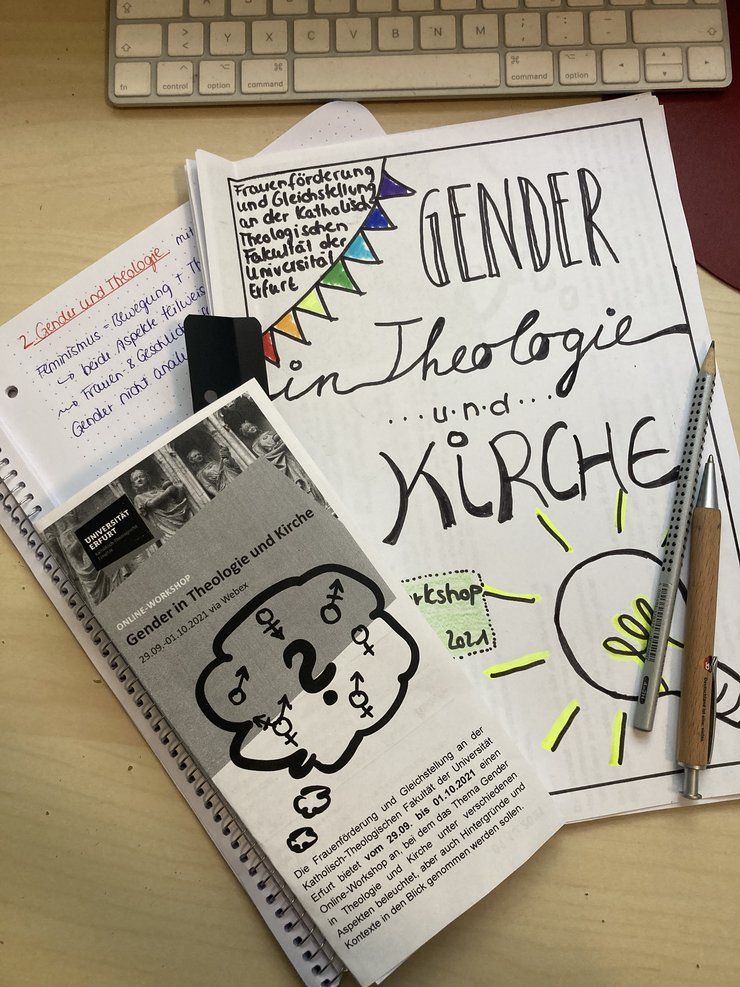 Y
X
C
V
B
N
M
fn
control
option
command
command
option
Frauenförderung
und Gleichstellung
an der Katholisch
Theologischen
Fakultät der
Universität
Erfurt
GENDER
in Theologie
...u·n·d...
KiRCHE
rkshop
2021
2. Gender und Theologie mit
Feminismus = Bewegung + Th
↳ beide Aspekte teilweis
Frauen- & Geschlech
Gender nicht ana
UNIVERSITÄT
ERFURT
Katholisch-Theologische
Fakultät
ONLINE-WORKSHOP
Gender in Theologie und Kirche
29.09.-01.10.2021 via Webex
?
Die Frauenförderung und Gleichstellung an der
Katholisch-Theologischen Fakultät der Universität
Erfurt bietet vom 29.09. bis 01.10.2021 einen
Online-Workshop an, bei dem das Thema Gender
in Theologie und Kirche unter verschiedenen
Aspekten beleuchtet, aber auch Hintergründe und
Kontexte in den Blick genommen werden sollen.